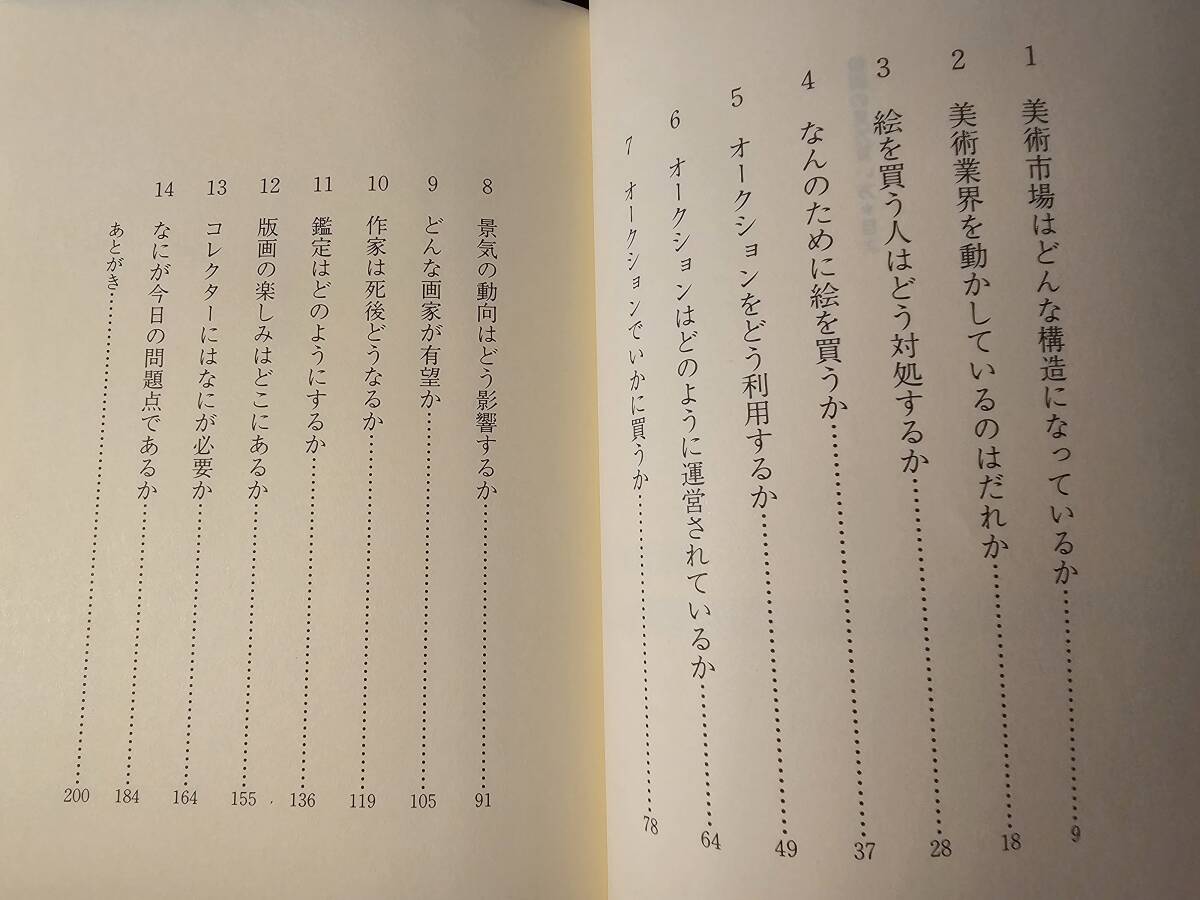 1 美術市場はどんな構造になっているか…………9
2 美術業界を動かしているのはだれか…………18
3 絵を買う人はどう対処するか…………28
4 なんのために絵を買うか…………37
5 オークションをどう利用するか…………49
6 オークションはどのように運営されているか…………64
7 オークションでいかに買うか…………78
8 景気の動向はどう影響するか…………91
9 どんな画家が有望か…………105
10 作家は死後どうなるか…………119
11 鑑定はどのようにするか…………136
12 版画の楽しみはどこにあるか…………155
13 コレクターにはなにが必要か…………164
14 なにが今日の問題点であるか…………184
あとがき…………200